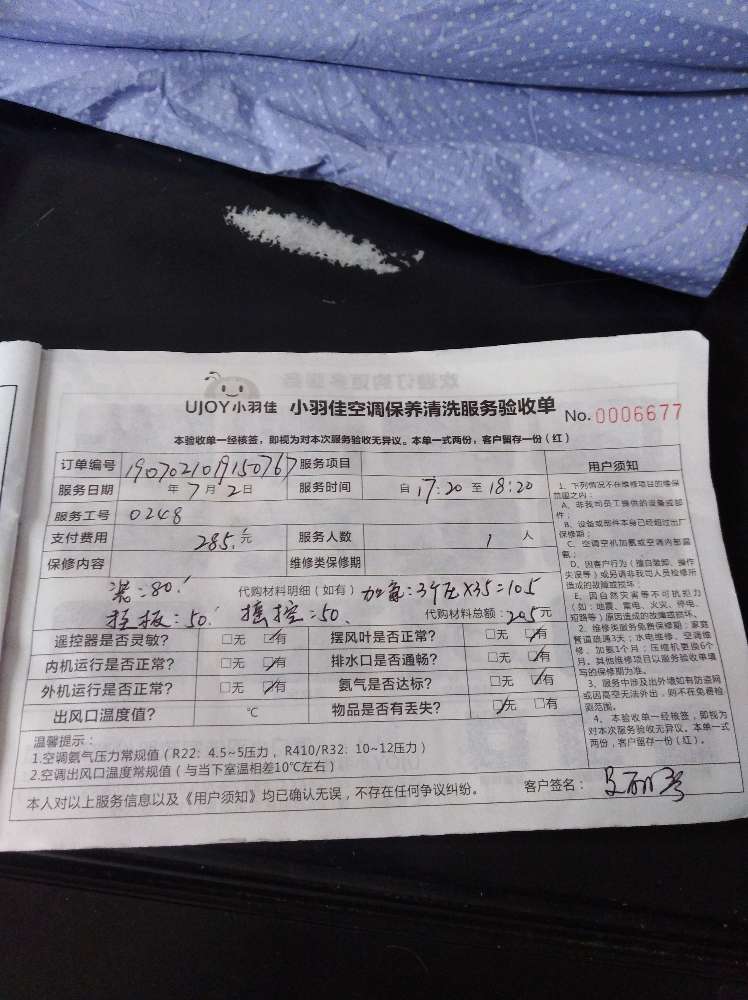 UJOY小羽佳 小羽佳空调保养清洗服务验收单 No.0006677
本验收单一经核签，即视为对本次服务验收无异议。本单一式两份，客户留存一份（红）
订单编号 190702109150767 服务项目
服务日期 年7月2日 服务时间 自17:20至18:20
服务工号 0248
支付费用 285.元 服务人数 1人
保修内容 维修类保修期
:80. 代购材料明细（如有） 加氟:3个压X35=105
:50. 遥控:50. 代购材料总额:205元
遥控器是否灵敏? □无 ☑有 摆风叶是否正常? □无 ☑有
内机运行是否正常? □无 ☑有 排水口是否通畅? □无 ☑有
外机运行是否正常? □无 ☑有 氨气是否达标? □无 ☑有
出风口温度值? ℃ 物品是否有丢失? ☑无 □有
温馨提示：
1.空调氨气压力常规值（R22: 4.5~5压力，R410/R32: 10~12压力）
2.空调出风口温度常规值（与当下室温相差10℃左右）
本人对以上服务信息以及《用户须知》均已确认无误，不存在任何争议纠纷。 客户签名：
用户须知
1、下列情况不在维修项目的维保
范围之内：
A、非我司员工提供的设备或部
件；
B、设备或部件本身已经超过出厂
保修期；
C、空调空机加氨或空调内部漏
氨；
D、因客户行为（擅自装卸、操作
失误等）或另请非我司人员检修所
造成的故障或损坏；
E、因自然灾害等不可抗拒力
（如：地震、雷电、火灾、停电、
短路等）原因造成的故障或损坏。
2、维修类服务免费保修期：家庭
管道疏通3天；水电维修、空调维
修、加氨1个月；压缩机更换6个
月。其他维修项目以服务验收单填
写的保修期为准。
3、服务中涉及出外墙如有防盗网
或因高空无法外出，则不在免费检
查范围。
4、本验收单一经核签，即视为
对本次服务验收无异议。本单一式
两份，客户留存一份（红）。